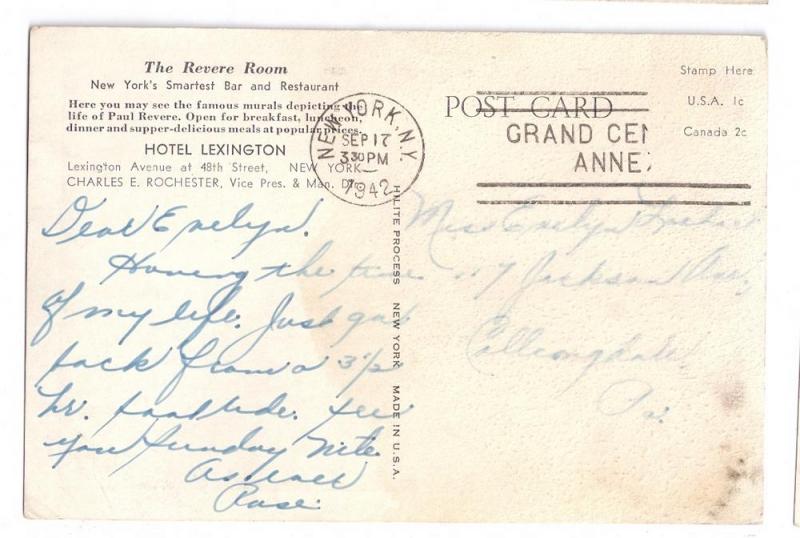 The Revere Room
New York's Smartest Bar and Restaurant
Here you may see the famous murals depicting the
life of Paul Revere. Open for breakfast, luncheon,
dinner and supper-delicious meals at popular prices.
HOTEL LEXINGTON
Lexington Avenue at 48th Street, NEW YORK
CHARLES E. ROCHESTER, Vice Pres. & Man. Dir.
Dear Evelyn.
Having the time
of my life. Just got
back from a 3 1/2
hr. boat ride. See
you Sunday nite.
As ever
Rose.
NEW YORK, N.Y.
SEP 17
3 30 PM
1942
HILITE PROCESS NEW YORK MADE IN U.S.A.
POST CARD
GRAND CEN
ANNEX
Stamp Here
U.S.A. 1c
Canada 2c
Miss Evelyn
Jackson Ave.
Collingdale,
Pa.